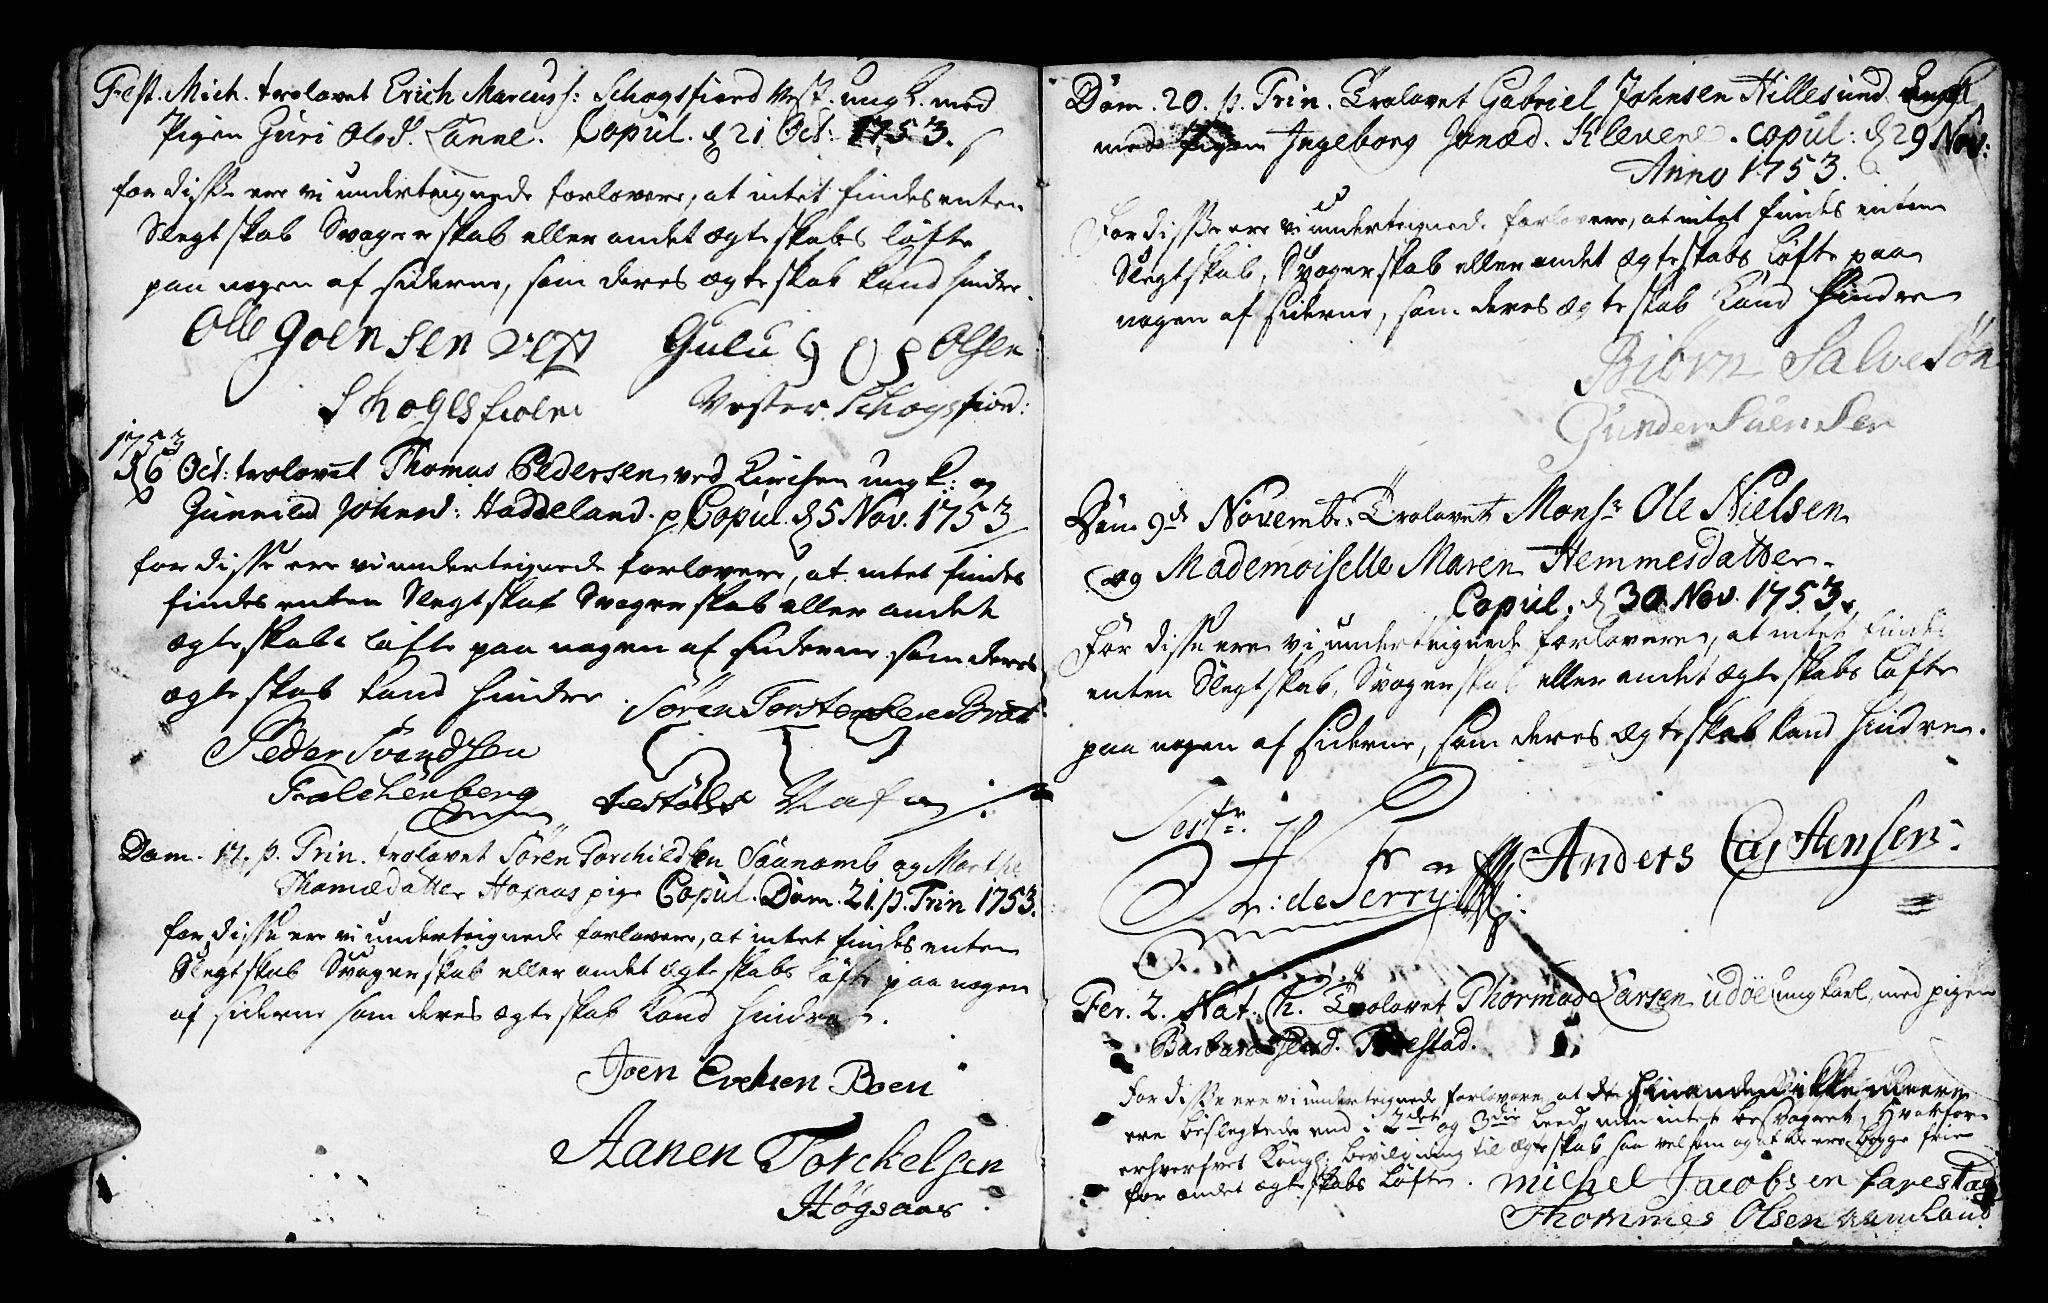 Fest. Mich. trolovet Erich Marcus s: Schogsfiord Vest. ung k. med
Pigen Guri Olsd. Tanne. Copul. d 21 Oct: 1753.
for disse ere vi underteignede forlovere, at intet findes enten
Slegtskab Svogerskab eller andet ægteskabs løfte
paa nogen af siderne, som deres ægteskab kand hindre.
Olle Joensen Gulu Olsen
Skogesfioen Vester Schogsfiord:
1753
d 6 Oct: trolovet Thomas Pedersen ved Kirchen ung k: og
Gunnild Johnsd: Haddeland. Copul. d 5 Nov. 1753
for disse ere vi underteignede forlovere, at intet findes
findes enten Slegtskab Svogerskab eller andet
ægteskabs løfte paa nogen af siderne som deres
ægteskab kand hindre. Sören Torstensen Brat
Peder Svendsen
Falchenberg
Dom. 17. p. Trin. trolovet Sören Torchildsen Saanomb og Marthe
Thomædatter Høgaas pige Copul. Dom. 21. p. Trin 1753.
for disse ere vi underteignede forlovere, at intet findes enten
Slegtskab Svogerskab eller andet ægteskabs løfte paa nogen
af siderne som deres ægteskab kand hindre.
Joen Evensen Boen
Aanen Torckelsen
Høgsaas
Dom. 20. p. Trin. Trolovet Gabriel Johnsen Hillesund
med Pigen Ingeborg Jonæd. Klevene. copul: d 29 Nov:
Anno 1753.
For disse ere vi underteignede forlovere, at intet findes enten
Slegtskab, Svogerskab eller andet ægteskabs løfte paa
nogen af siderne, som deres ægteskab kand hindre
Biorn Salvesøn
Gunder Suensen
Den 9de Novembr. Trolovet Monsr Ole Nielsen
og Mademoiselle Maren Hemmesdatter.
Copul. d 30 Nov. 1753.
For disse ere vi underteignede forlovere, at intet findes
enten Slegtskab, Svogerskab eller andet ægteskabs løfte
paa nogen af siderne, som deres ægteskab kand hindre.
Anders Carstensen
de Ferry
Fer. 2. Nat. Ch. Trolovet Thormod Larsen Udøe ung karl, med pigen
Barbara Torestad.
For disse ere vi underteignede forlovere, at de hinanden ikke nærmere
ere beslegtede end i 2det og 3die Leed, men intet besvogret, hvorfore
erhvervet Kongl: bevilgning til ægteskab saa vel som og at de ere begge frie
for andet ægteskabs løfte. Michel Jacobsen Farestad
Thommes Olsen